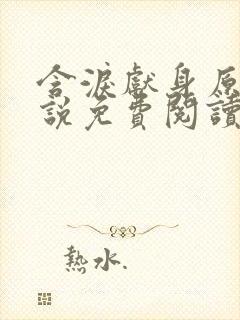 含淚獻身原
説免費閱讀
熱水.